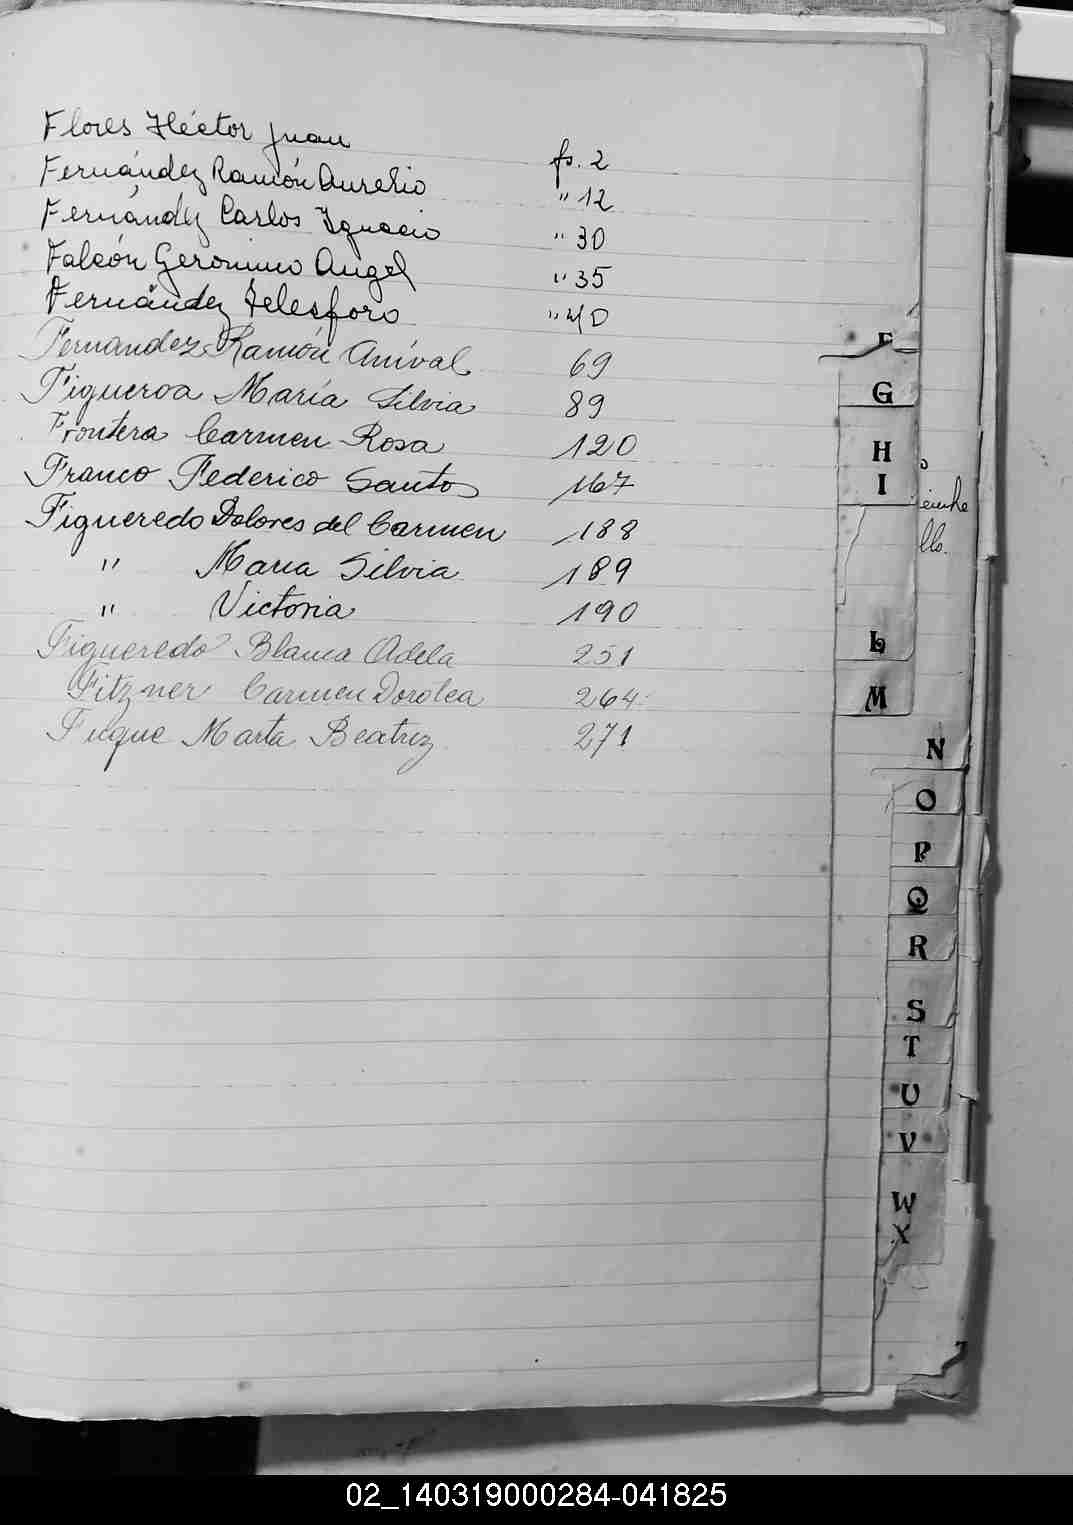 Flores Héctor Juan fs. 2
Fernández Ramón Aurelio " 12
Fernández Carlos Ignacio " 30
Falcón Gerónimo Angel " 35
Fernández Telesforo " 40
Fernandez Ramón Aníval 69
Figueroa María Silvia 89
Frontera Carmen Rosa 120
Franco Federico Santos 167
Figueredo Dolores del Carmen 188
" Maria Silvia 189
" Victoria 190
Figueredo Blanca Adela 251
Fitzner Carmen Dorotea 264
Fuque Marta Beatriz 271
F
G
H
I
L
M
N
O
P
Q
R
S
T
U
V
W
X
02_140319000284-041825